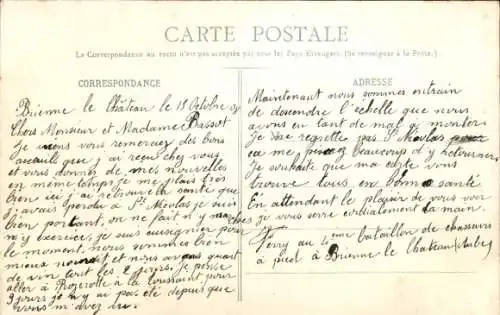 CARTE POSTALE
La Correspondance au recto n'est pas acceptée par tous les Pays Etrangers. (Se renseigner à la Poste.)
CORRESPONDANCE
Brienne le Château le 13 Octobre
Chers Monsieur et Madame Bassot
Je viens vous remercier des bons
accueils que j'ai reçu chez vous
et vous donner de mes nouvelles
en même temps je me plais très
bien ici j'ai retrouvé la santé que
j'avais perdu à St Nicolas je suis
bien portant, on ne fait n'y marches
n'y exercices, je suis cuisinier pour
le moment, nous sommes bien
mieux nourri et nous avons quart
de vin tout les 2 jours. Je pense
aller à Rozerotte à la toussaint pour
3 jours je n'y ai pas été depuis que
vous m'avez vu.
ADRESSE
Maintenant nous sommes entrain
de descendre l'échelle que nous
avons eu tant de mal à monter
Je ne regrette pas St Nicolas
ça me beaucoup d'y retourner
Je souhaite que ma carte vous
trouve tous en bonne santé
En attendant le plaisir de vous voir
je vous serre cordialement la main.
Ferry au bataillon de chasseurs
à pied à Brienne le Chateau (Aube)